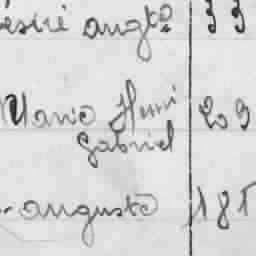 ésiré augte 33
Marie Henri 209
Gabriel
auguste 181